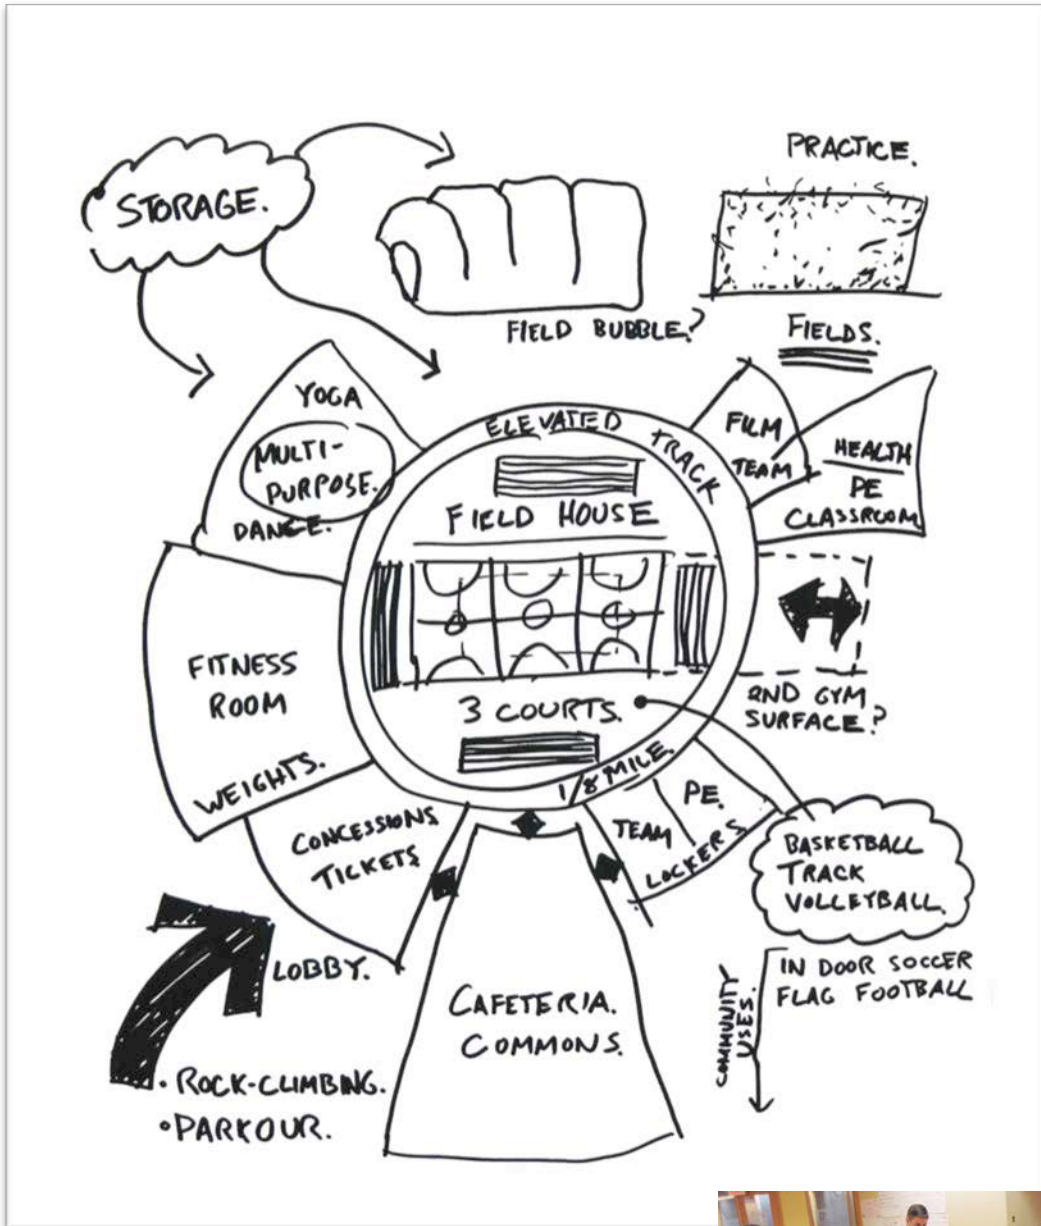 PRACTICE.
STORAGE.
FIELD BUBBLE?
FIELDS.
YOGA
MULTI-
PURPOSE.
DANCE.
ELEVATED TRACK
FILM
TEAM
HEALTH
PE
CLASSROOM
FIELD HOUSE
FITNESS
ROOM
WEIGHTS.
3 COURTS.
1/8 MILE.
2ND GYM
SURFACE?
CONCESSIONS
TICKETS
TEAM
PE.
LOCKERS
BASKETBALL
TRACK
VOLLEYBALL.
LOBBY.
CAFETERIA.
COMMONS.
IN DOOR SOCCER
FLAG FOOTBALL
COMMUNITY
USES.
• ROCK-CLIMBING.
• PARKOUR.